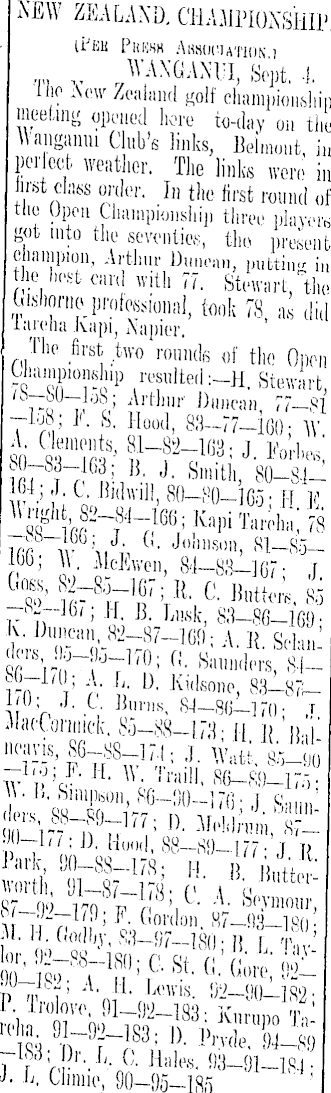 NEW ZEALAND CHAMPIONSHIP.
(PER PRESS ASSOCIATION.)
WANGANUI, Sept. 4.
The New Zealand golf championship
meeting opened here to-day on the
Wanganui Club's links, Belmont, in
perfect weather. The links were in
first class order. In the first round of
the Open Championship three players
got into the seventies, the present
champion, Arthur Duncan, putting in
the best card with 77. Stewart, the
Gisborne professional, took 78, as did
Tareha Kapi, Napier.
The first two rounds of the Open
Championship resulted:—H. Stewart,
78—80—158; Arthur Duncan, 77—81
—158; F. S. Hood, 83—77—160; W.
A. Clements, 81—82—163; J. Forbes,
80—83—163; B. J. Smith, 80—84—
164; J. C. Bidwill, 80—80—165; H. E.
Wright, 82—84—166; Kapi Tareha, 78
—88—166; J. G. Johnson, 81—85—
166; W. McEwen, 84—83—167; J.
Goss, 82—85—167; R. C. Butters, 85
—82—167; H. B. Lusk, 83—86—169;
K. Duncan, 82—87—169; A. R. Sclan-
ders, 95—95—170; G. Saunders, 84—
86—170; A. L. D. Kidsone, 83—87—
170; J. C. Burns, 84—86—170; J.
MacCormick, 85—88—173; H. R. Bal-
neavis, 86—88—174; J. Watt, 85—90
—175; F. H. W. Traill, 86—89—175;
W. B. Simpson, 86—90—176; J. Saun-
ders, 88—89—177; D. Meldrum, 87—
90—177; D. Hood, 88—89—177; J. R.
Park, 90—88—178; H. B. Butter-
worth, 91—87—178; C. A. Seymour,
87—92—179; F. Gordon, 87—93—180;
M. H. Godby, 83—97—180; B. L. Tay-
lor, 92—88—180; C. St. G. Gore, 92—
90—182; A. H. Lewis, 92—90—182;
P. Trolove, 91—92—183; Kurupo Ta-
reha, 91—92—183; D. Pryde, 94—89
—183; Dr. L. C. Hales, 93—91—184;
J. L. Climie, 90—95—185